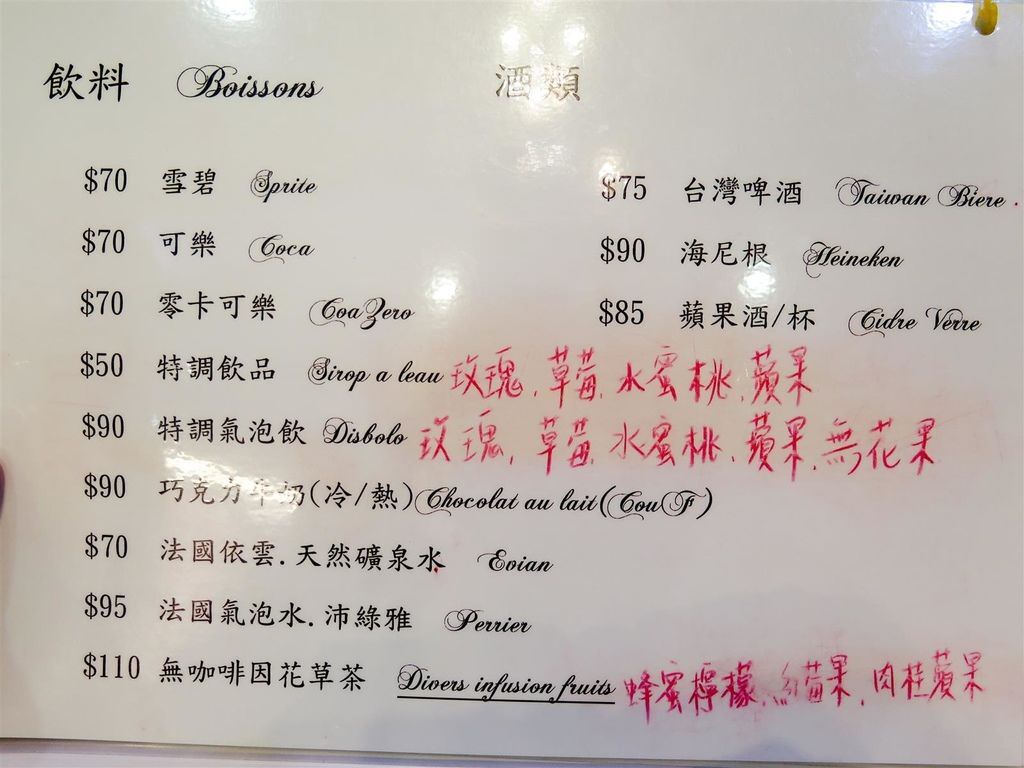 飲料 Boissons
酒類
$70 雪碧 Sprite
$70 可樂 Coca
$70 零卡可樂 Coa Zero
$50 特調飲品 Sirop a leau 玫瑰.草莓.水蜜桃.蘋果
$90 特調氣泡飲 Disbolo 玫瑰.草莓.水蜜桃.蘋果.無花果
$90 巧克力牛奶(冷/熱) Chocolat au lait (CouF)
$70 法國依雲.天然礦泉水 Evian
$95 法國氣泡水.沛綠雅 Perrier
$110 無咖啡因花草茶 Divers infusion fruits 蜂蜜檸檬.紅莓果.肉桂蘋果
$75 台灣啤酒 Taiwan Biere
$90 海尼根 Heineken
$85 蘋果酒/杯 Cidre Verre